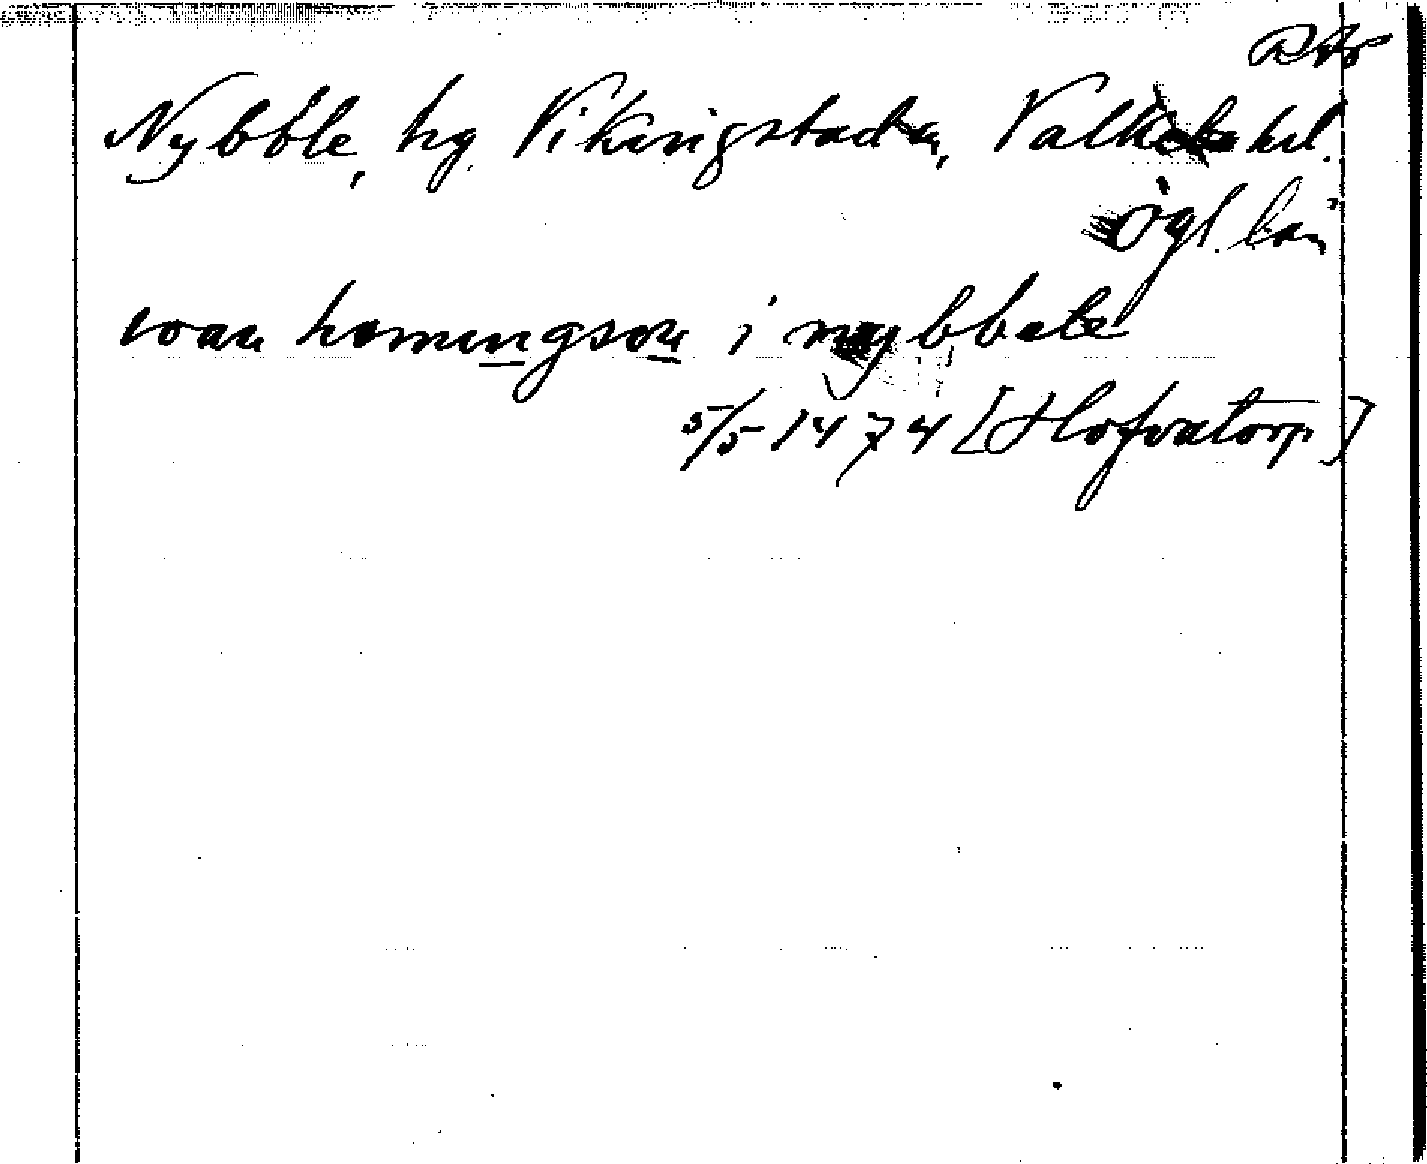 Nybble, hg, Vikingstads sn, Valkebo hd.
Ögl. län
ioan hemingson i nybbele
5/5 1474 [Hofvatorp]